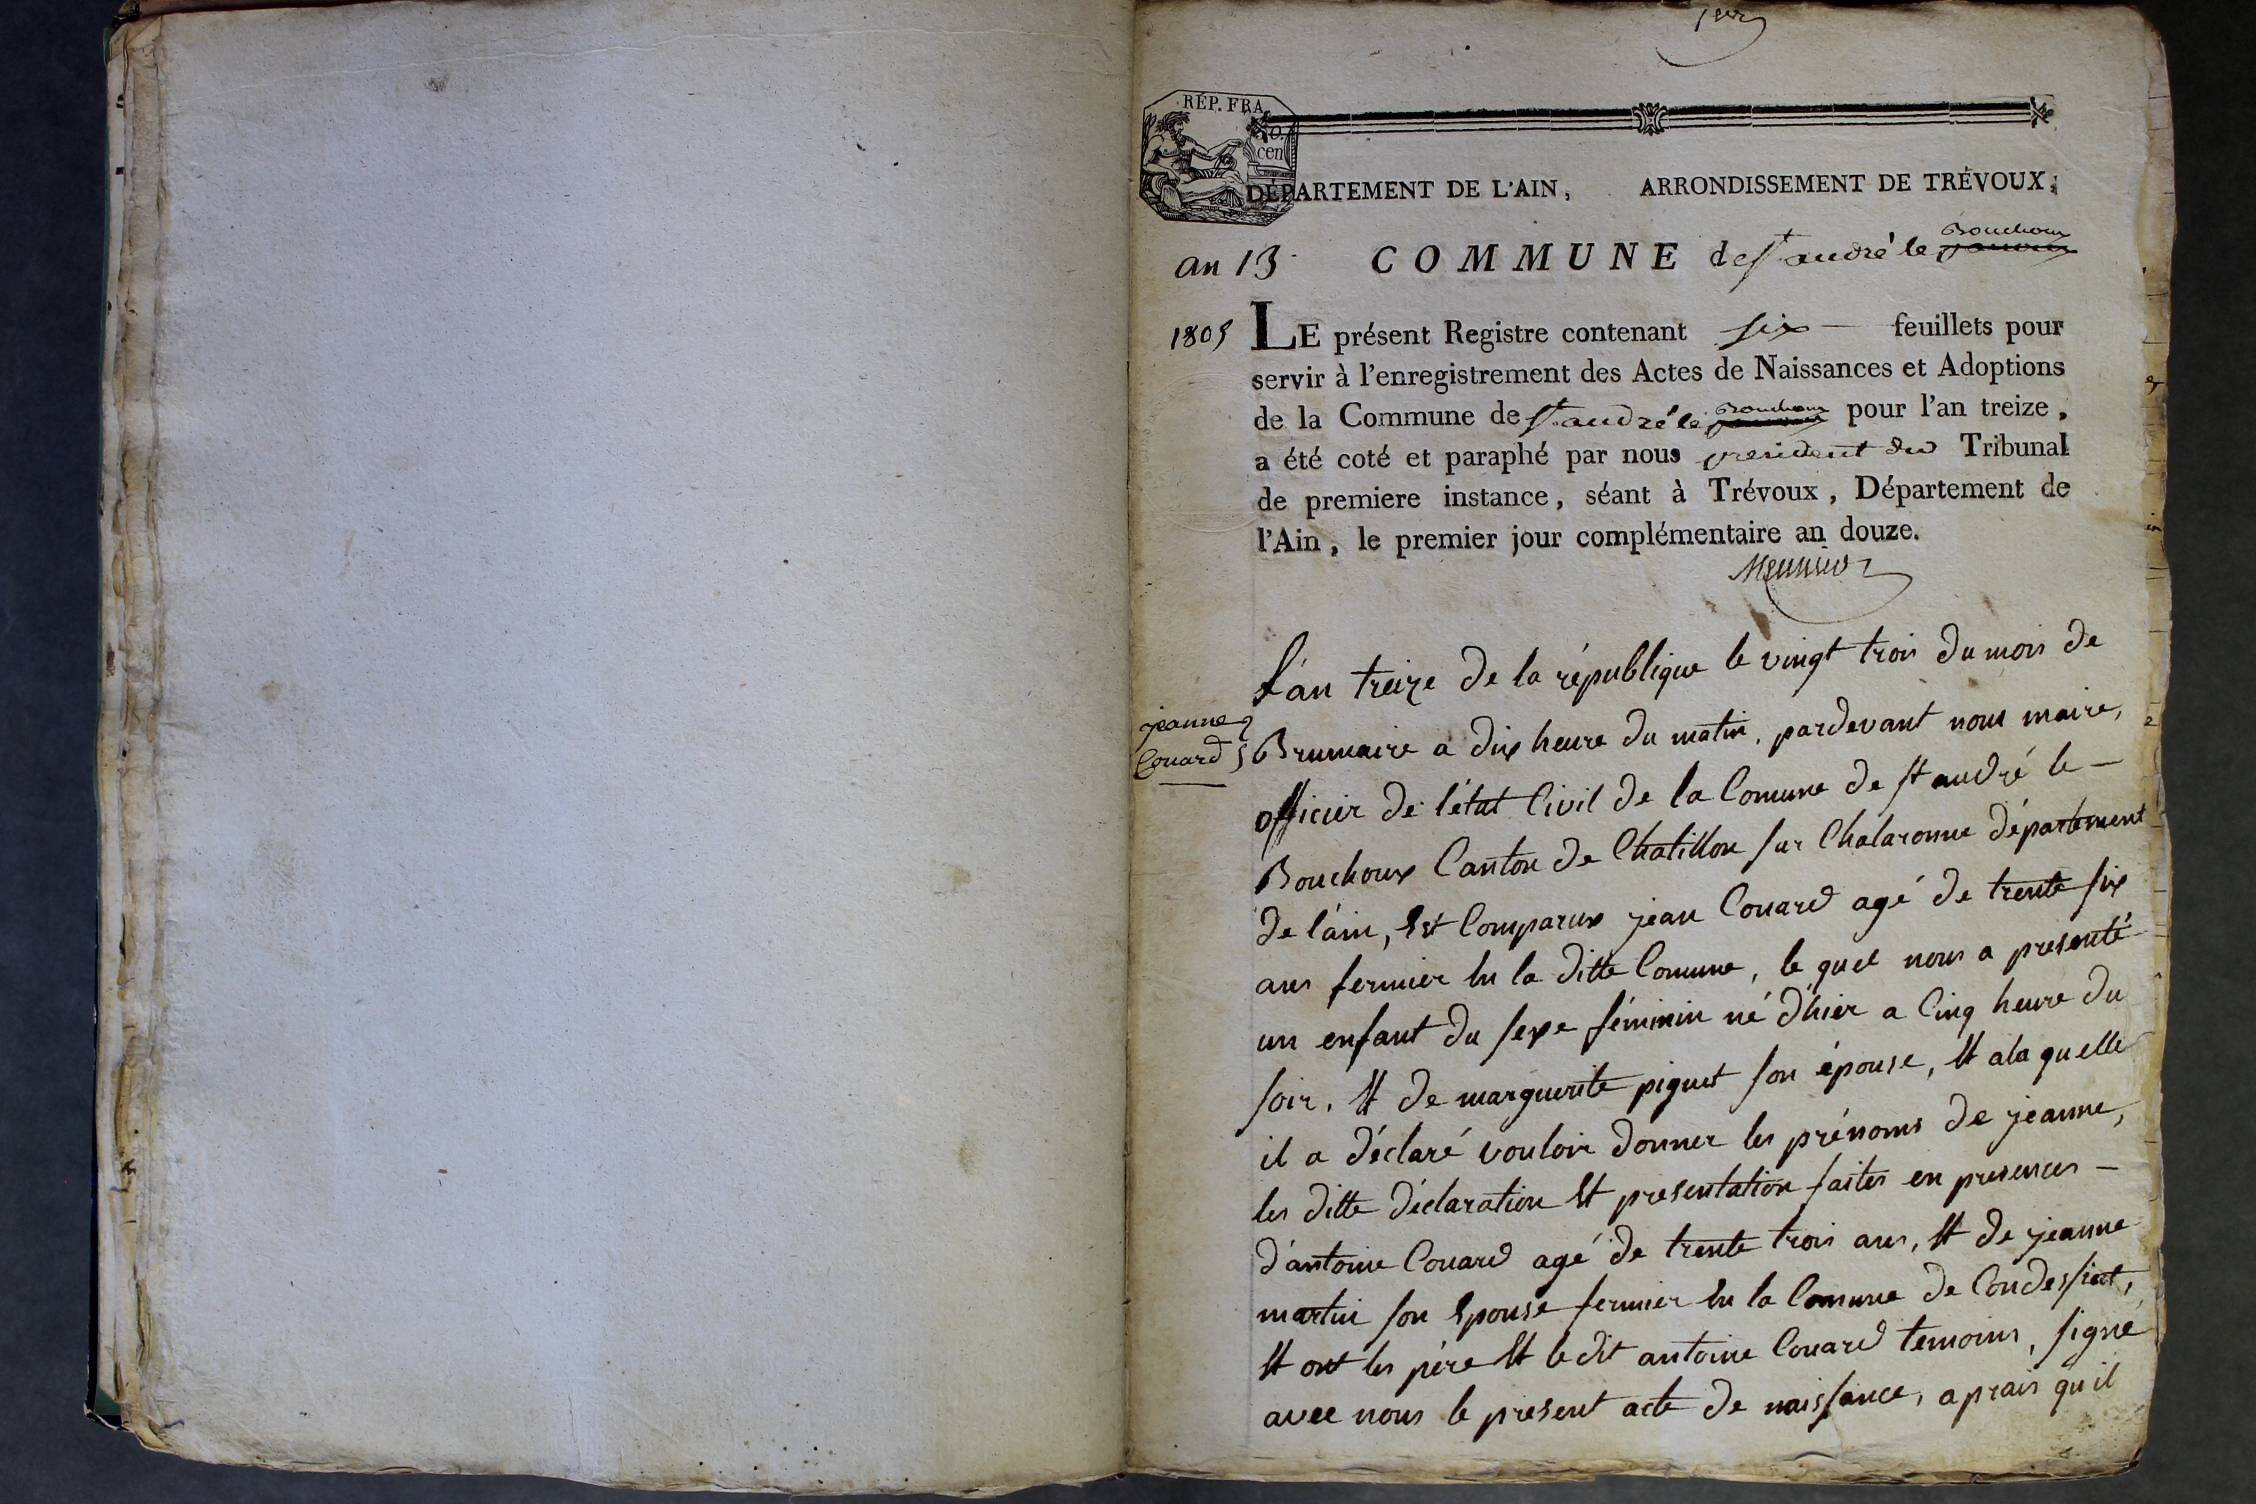 1er
RÉP. FRA.
cen
DÉPARTEMENT DE L'AIN, ARRONDISSEMENT DE TRÉVOUX,
an 13 COMMUNE de St andré le Bouchoux
1805 LE présent Registre contenant six — feuillets pour
servir à l'enregistrement des Actes de Naissances et Adoptions
de la Commune de St andré le Bouchoux pour l'an treize,
a été coté et paraphé par nous president du Tribunal
de premiere instance, séant à Trévoux, Département de
l'Ain, le premier jour complémentaire an douze.
L'an treize de la république le vingt trois du mois de
jeanne
Couard
Brumaire a dix heure du matin, pardevant nous maire,
officier de l'état Civil de la Comune de St andré le —
Bouchoux Canton de Chatillon sur Chalaronne département
de l'ain, Est Comparux jean Couard agé de trente six
ans fermier En la ditte Comune, le quel nous a presenté
un enfant du sexe féminin né d'hier a Cinq heure du
soir, Et de marguerite piguet son épouse, Et a la quelle
il a déclaré vouloir donner les prénoms de jeanne,
les ditte déclaration Et presentation faites en presences —
d'antoine Couard agé de trente trois ans, Et de jeanne
martin son Epouse fermier En la Comune de Condessiat,
Et ont les père Et le dit antoine Couard temoins, signé
avec nous le present acte de naissance, aprais qu'il